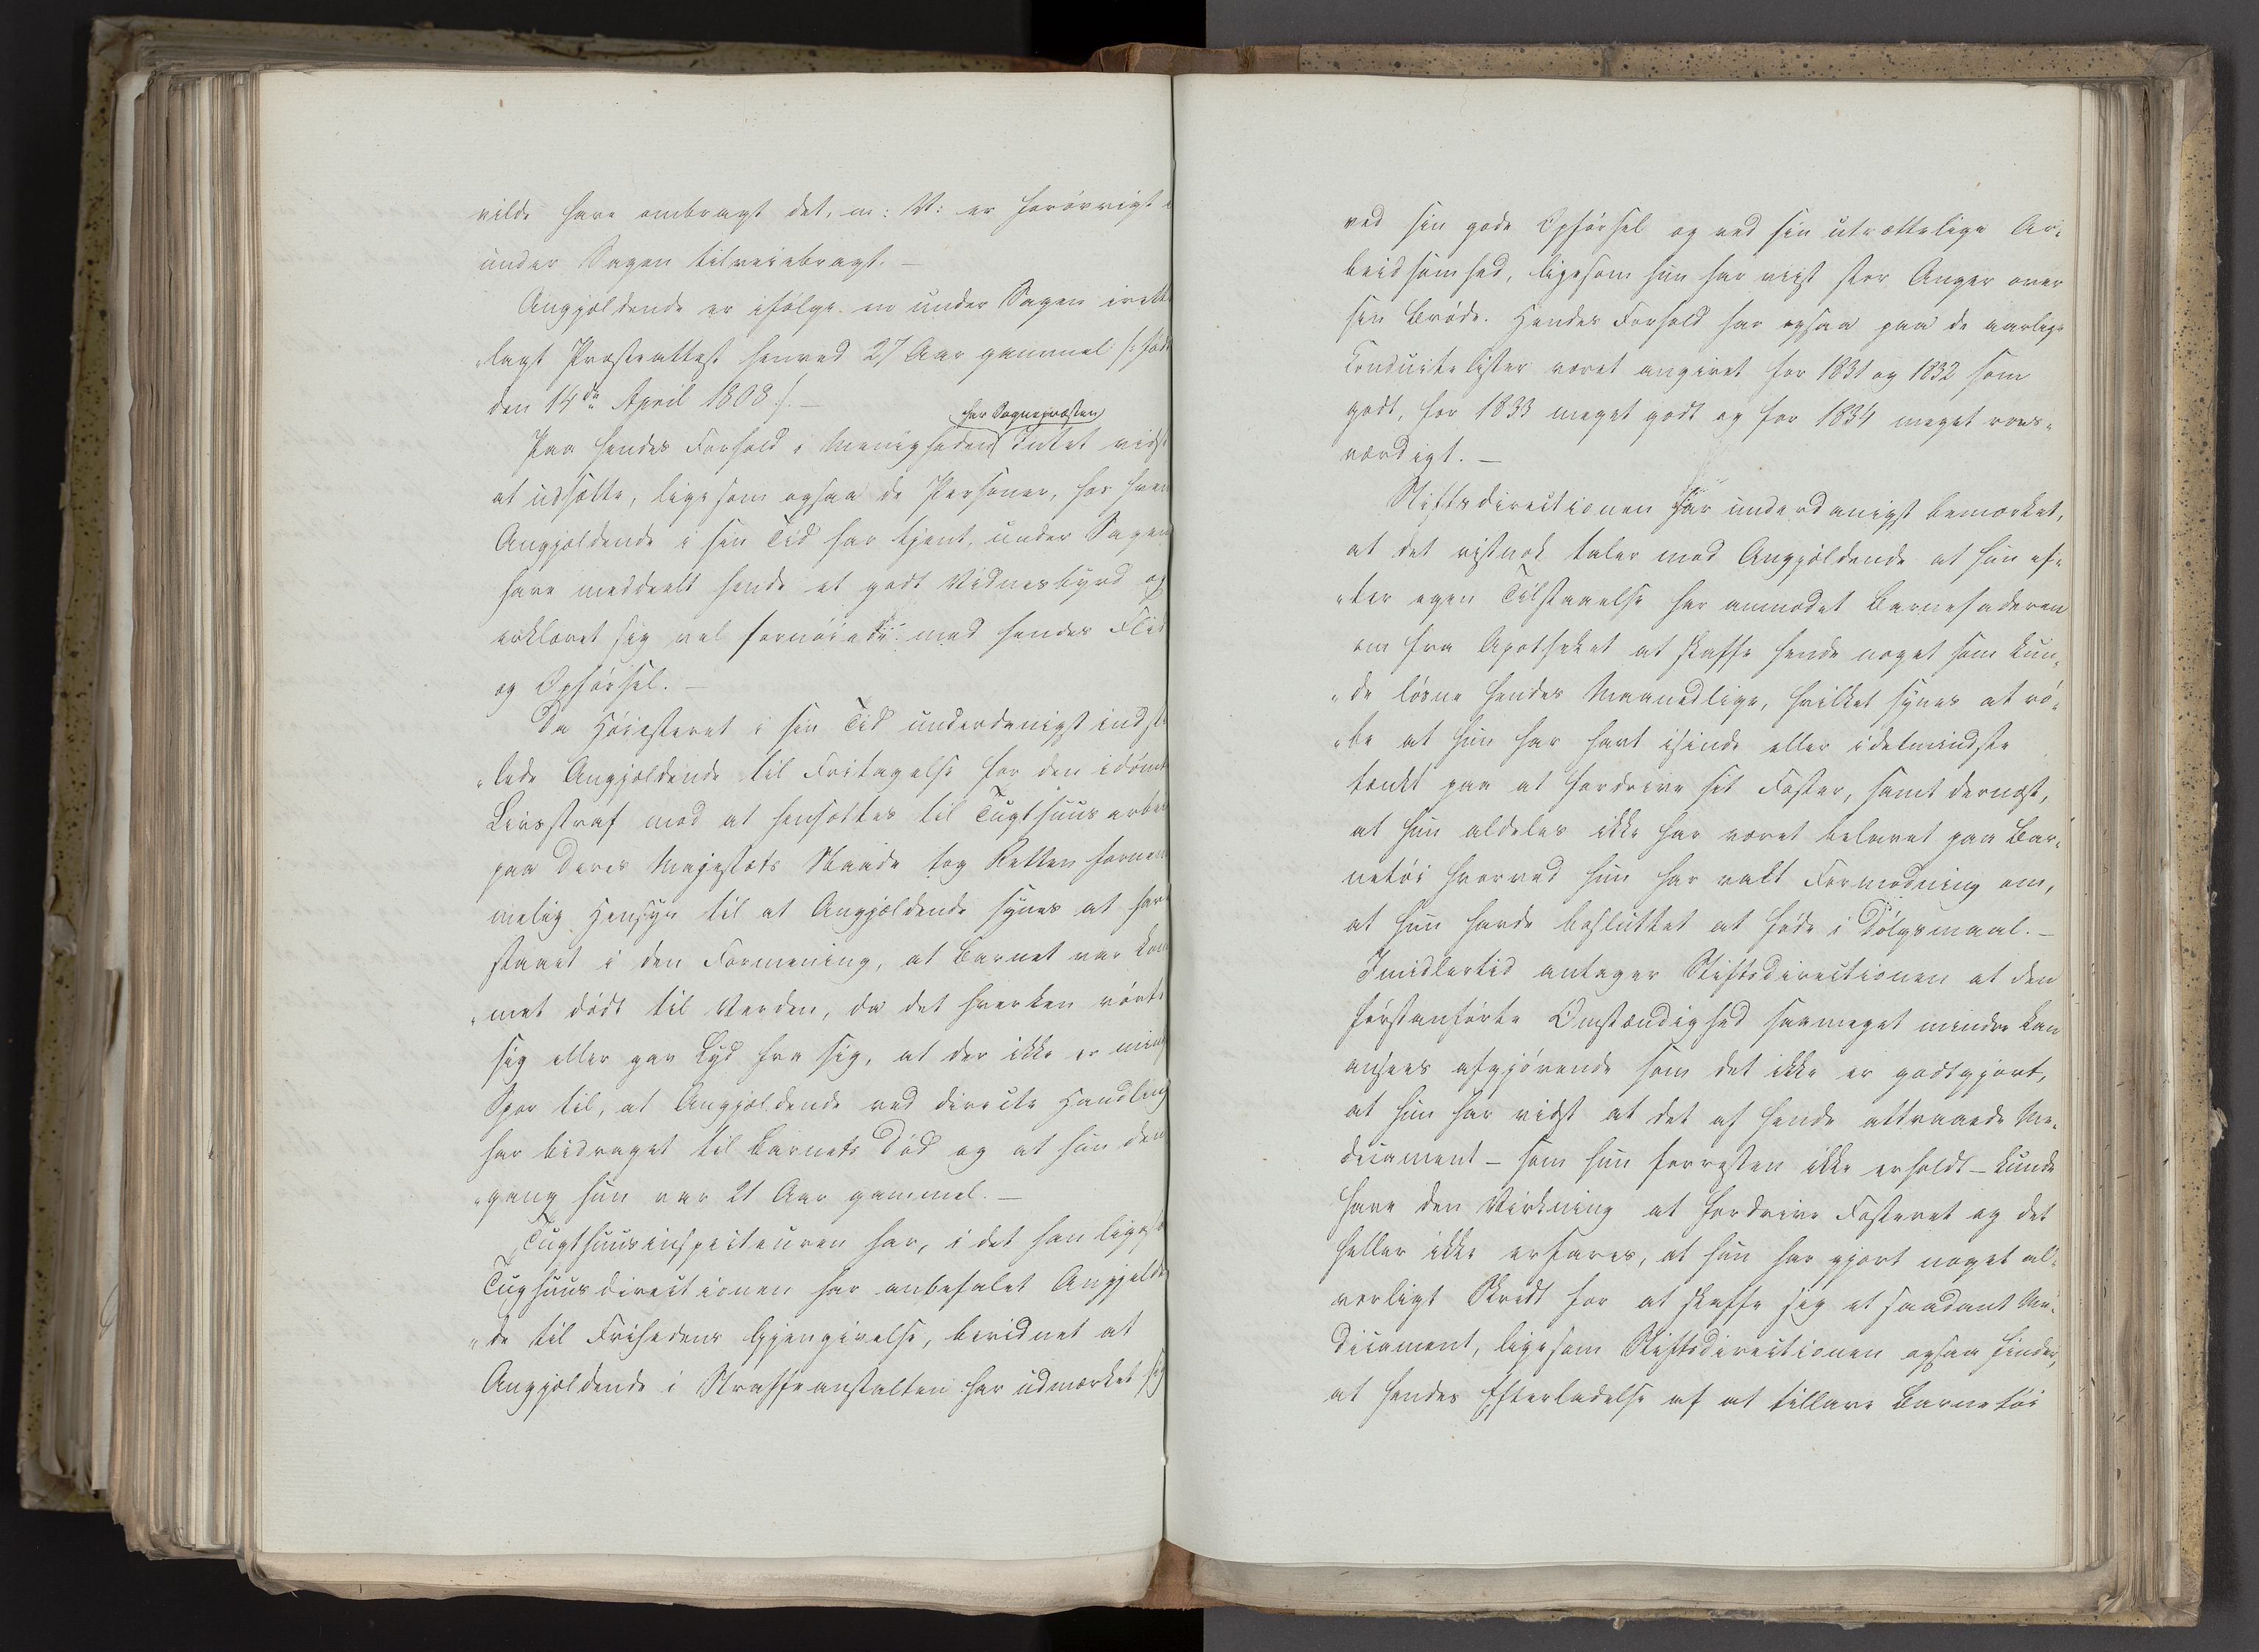 vilde have ombragt det, m: V: er forøvrigt
under Sagen tilveiebragt. —
Angjældende er ifølge en under Sagen irette
„lagt Præsteattest henved 27 Aar gammel /: født
den 14de April 1808 :/. —
har Sognepræsten
Paa hendes Forhold i Menigheden Intet vidst
at udsætte, ligesom ogsaa de Personer, hos hvem
Angjældende i sin Tid har tjent, under Sagen
have meddeelt hende et godt Vidnesbyrd og
erklæret sig vel fornøiede med hendes Flid
og Opførsel. —
Da Høiesteret i sin Tid underdanigst indstil
„lede Angjældende til Fritagelse for den idømte
Livsstraf mod at hensættes til Tugthuusarbeide
paa Deres Majestæts Naade tog Retten fornem
melig Hensyn til at Angjældende synes at have
staaet i den Formening, at Barnet var kom
„met dødt til Verden, da det hverken rørte
sig eller gav Lyd fra sig, at der ikke er mindste
Spor til, at Angjældende ved directe Handling
har bidraget til Barnets Død og at hun den
„gang hun var 21 Aar gammel. —
Tugthuusinspecteuren har, i det han ligesom
Tugthuusdirectionen har anbefalet Angjælden
„de til Frihedens Gjengivelse, bevidnet at
Angjældende i Straffeanstalten har udmærket sig
ved sin gode Opførsel og ved sin utrættelige Ar„
beidsomhed, ligesom hun har viist stor Anger over
sin Brøde. Hendes Forhold har ogsaa paa de aarlige
Conduitelister været angivet for 1831 og 1832 som
godt, for 1833 meget godt og for 1834 meget roes„
værdigt. —
Stiftsdirectionen har underdanigst bemærket,
at det vistnok taler mod Angjældende at hun ef„
„ter egen Tilstaaelse har anmodet Barnefaderen
om fra Apotheket at skaffe hende noget som kun„
„de løsne hendes Maanedlige, hvilket synes at rø„
„be at hun har havt isinde eller idetmindste
tænkt paa at fordrive sit Foster, samt dernæst,
at hun aldeles ikke har været belavet paa Bar„
netøi hvorved hun har vakt Formodning om,
at hun havde besluttet at føde i Dølgsmaal. —
Imidlertid antager Stiftsdirectionen at den
førstanførte Omstændighed saameget mindre kan
ansees afgjørende som det ikke er godtgjort,
at hun har vidst at det af hende attraaede Me„
dicament — som hun forresten ikke erholdt — kunde
have den Virkning at fordrive Fosteret og det
heller ikke erfares, at hun har gjort noget al„
vorligt Skridt for at skaffe sig et saadant Me„
dicament, ligesom Stiftsdirectionen ogsaa finder,
at hendes Efterladelse af at tillave Barnetøi